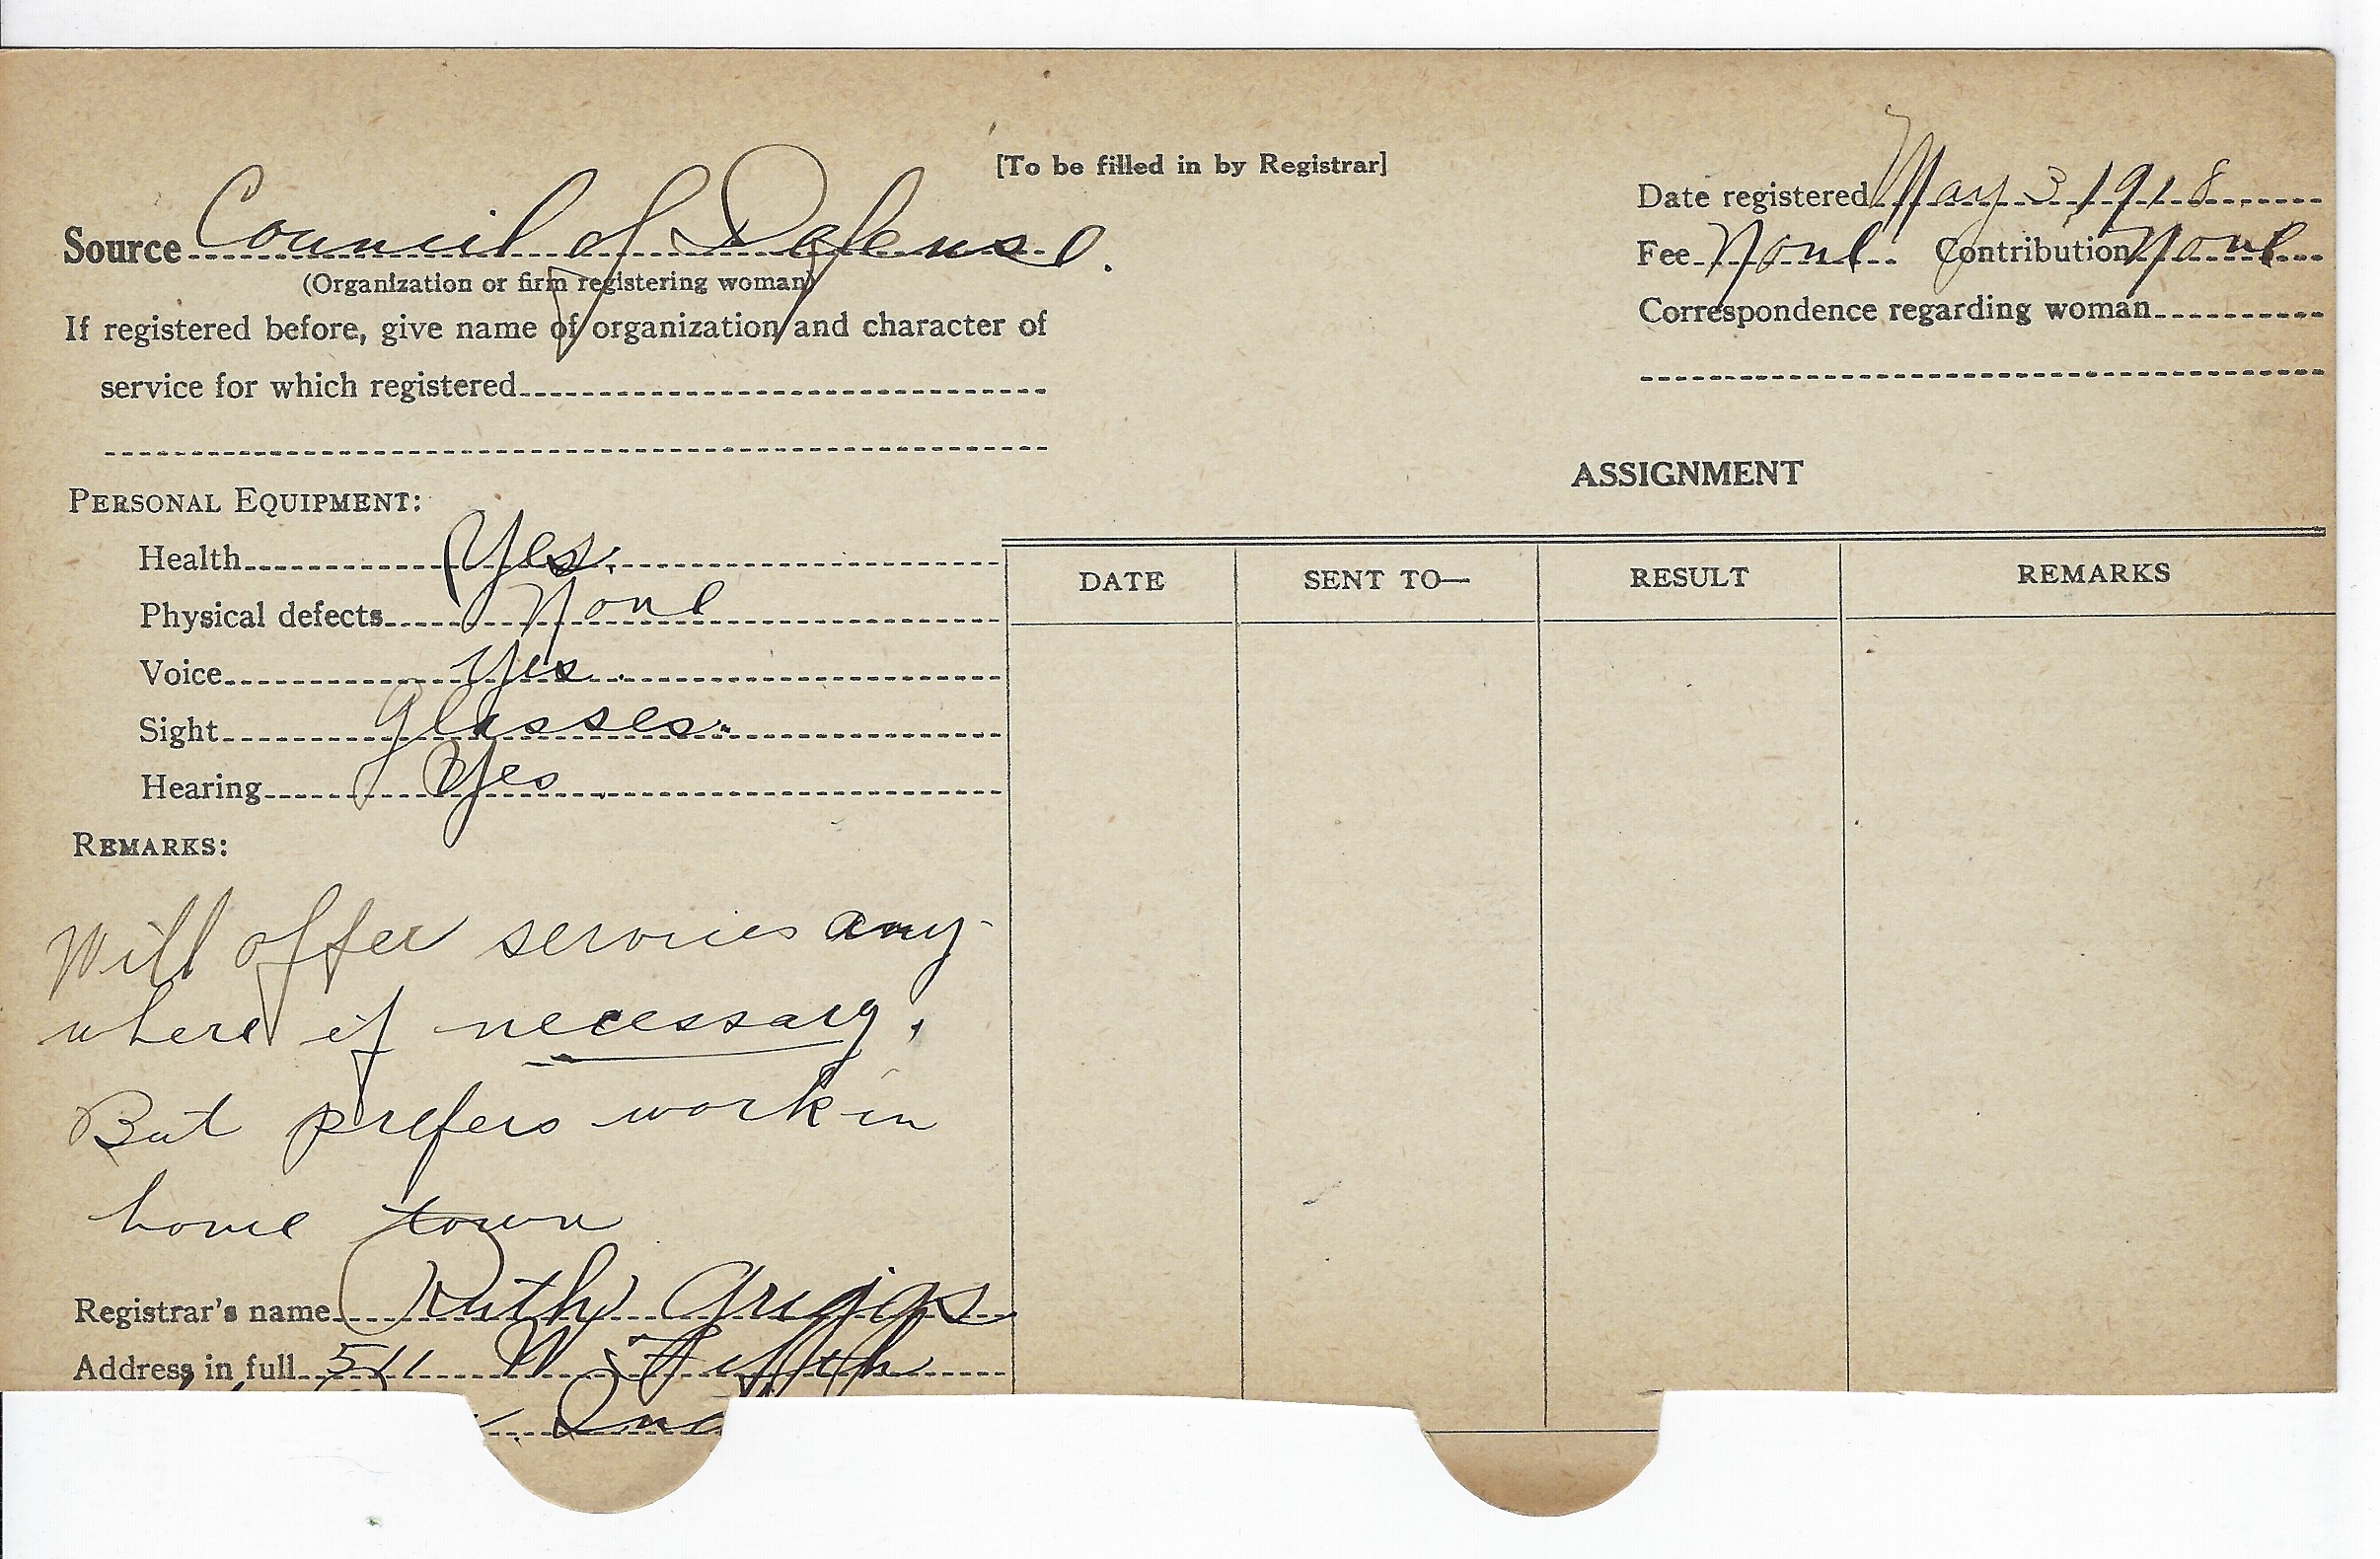 [To be filled in by Registrar]
Source Council of Defense.
(Organization or firm registering woman)
If registered before, give name of organization and character of
service for which registered
Date registered May 3, 1918.
Fee None Contribution None
Correspondence regarding woman
PERSONAL EQUIPMENT:
Health Yes.
Physical defects None
Voice Yes.
Sight Glasses.
Hearing Yes.
REMARKS:
Will offer services any-
where if necessary.
But prefers work in
home town
Registrar's name Ruth Griggs
Address in full 511 N Fifth
Ind
ASSIGNMENT
DATE SENT TO— RESULT REMARKS